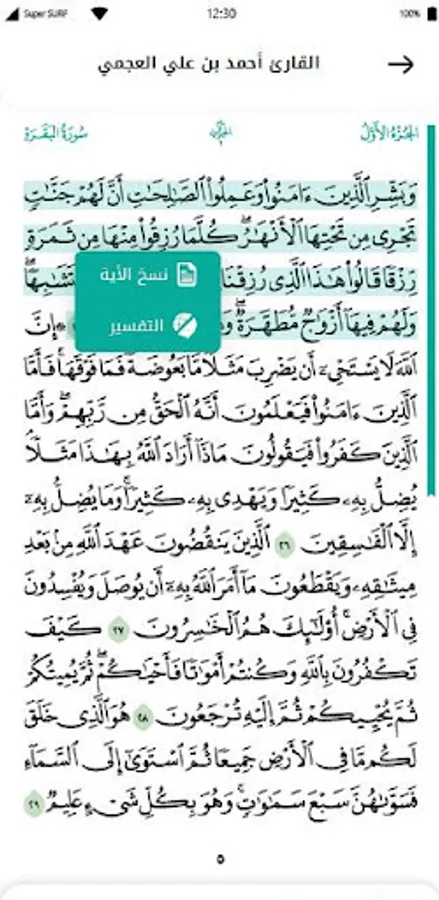 Super SURF 12:30 100%
القارئ أحمد بن علي العجمي
الجزء الأول سورة البقرة
وَبَشِّرِ الَّذِينَ ءَامَنُوا وَعَمِلُوا الصَّالِحَاتِ أَنَّ لَهُمْ جَنَّاتٍ
تَجْرِى مِن تَحْتِهَا الْأَنْهَارُ ۖ كُلَّمَا رُزِقُوا مِنْهَا مِن ثَمَرَةٍ
رِّزْقًا قَالُوا هَٰذَا الَّذِى رُزِقْنَا
نسخ الأية
وَلَهُمْ فِيهَا أَزْوَاجٌ مُّطَهَّرَةٌ ۖ ۞ إِنَّ
التفسير
اللَّهَ لَا يَسْتَحْىِۦٓ أَن يَضْرِبَ مَثَلًا مَّا بَعُوضَةً فَمَا فَوْقَهَا ۚ فَأَمَّا
الَّذِينَ ءَامَنُوا فَيَعْلَمُونَ أَنَّهُ الْحَقُّ مِن رَّبِّهِمْ ۖ وَأَمَّا
الَّذِينَ كَفَرُوا فَيَقُولُونَ مَاذَا أَرَادَ اللَّهُ بِهَٰذَا مَثَلًا ۘ
يُضِلُّ بِهِۦ كَثِيرًا وَيَهْدِى بِهِۦ كَثِيرًا ۚ وَمَا يُضِلُّ بِهِۦٓ
إِلَّا الْفَاسِقِينَ ٢٦ الَّذِينَ يَنقُضُونَ عَهْدَ اللَّهِ مِنۢ بَعْدِ
مِيثَاقِهِۦ وَيَقْطَعُونَ مَا أَمَرَ اللَّهُ بِهِۦٓ أَن يُوصَلَ وَيُفْسِدُونَ
فِى الْأَرْضِ ۚ أُولَٰئِكَ هُمُ الْخَاسِرُونَ ٢٧ كَيْفَ
تَكْفُرُونَ بِاللَّهِ وَكُنتُمْ أَمْوَاتًا فَأَحْيَاكُمْ ۖ ثُمَّ يُمِيتُكُمْ
ثُمَّ يُحْيِيكُمْ ثُمَّ إِلَيْهِ تُرْجَعُونَ ٢٨ هُوَ الَّذِى خَلَقَ
لَكُم مَّا فِى الْأَرْضِ جَمِيعًا ثُمَّ اسْتَوَىٰ إِلَى السَّمَاءِ
فَسَوَّاهُنَّ سَبْعَ سَمَاوَاتٍ ۚ وَهُوَ بِكُلِّ شَىْءٍ عَلِيمٌ ٢٩
٥